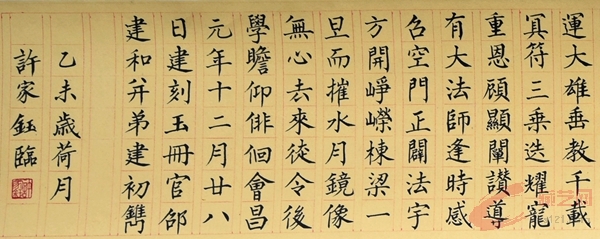 運大雄垂教千載
冥符三乘迭耀寵
重恩顧顯闡讚導
有大法師逢時感
召空門正闢法宇
方開崢嶸棟梁一
旦而摧水月鏡像
無心去來徒令後
學瞻仰俳佪會昌
元年十二月廿八
日建刻玉冊官邵
建和并弟建初鐫
乙未歲荷月
許家鈺臨